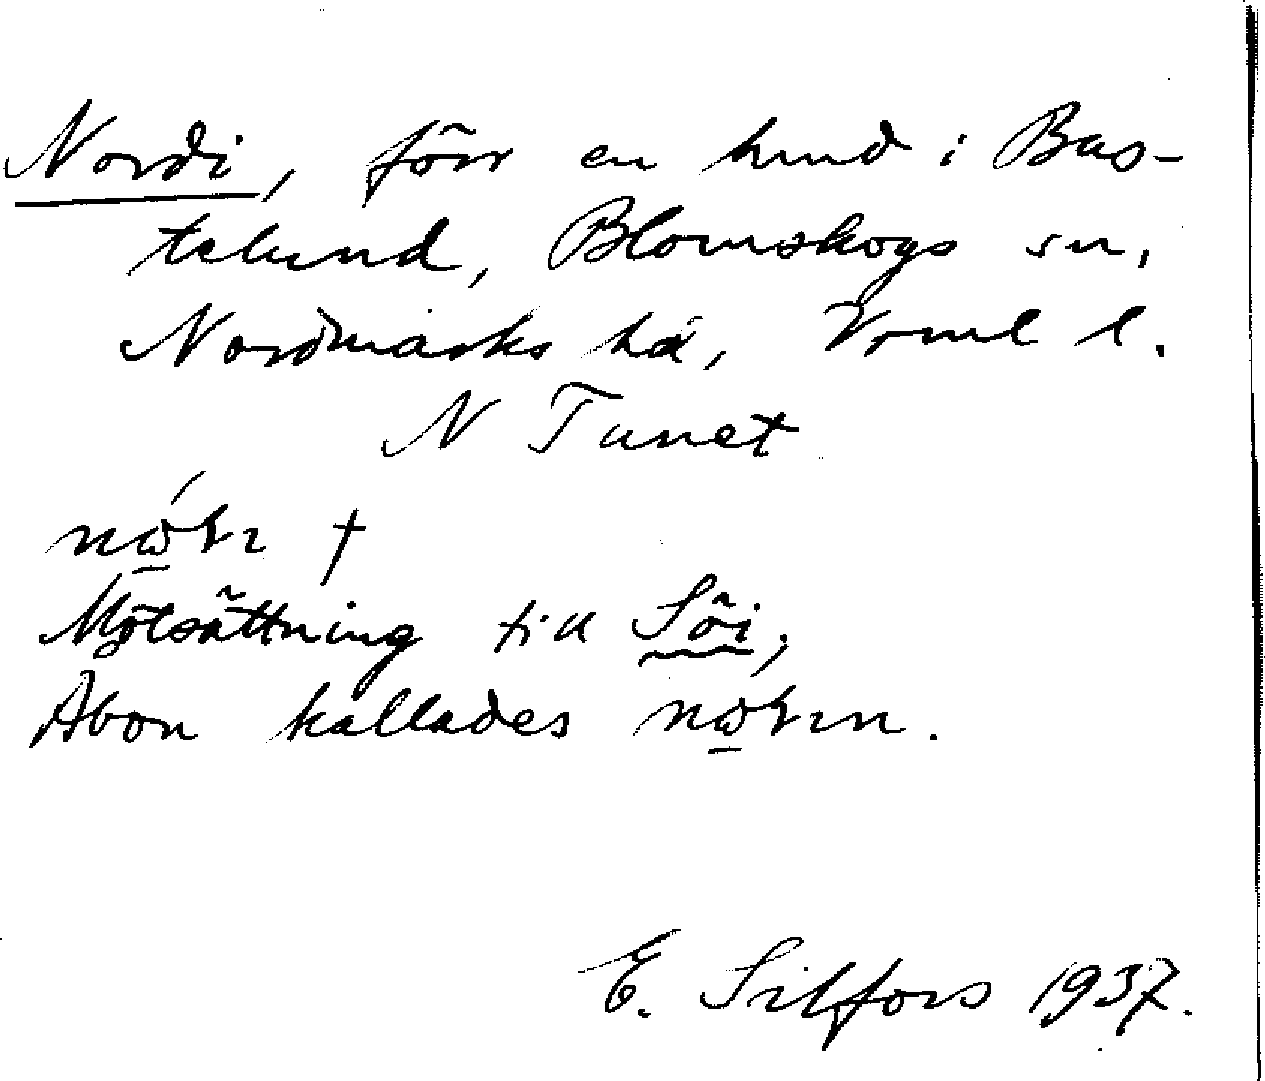 Nordi, förr en hund i Bas-
telund, Blomskogs sn,
Nordmarks hä, Vrml l.
N Tunet
†
Motsättning till Söi,
Åbon kallades
E. Silfors 1937.